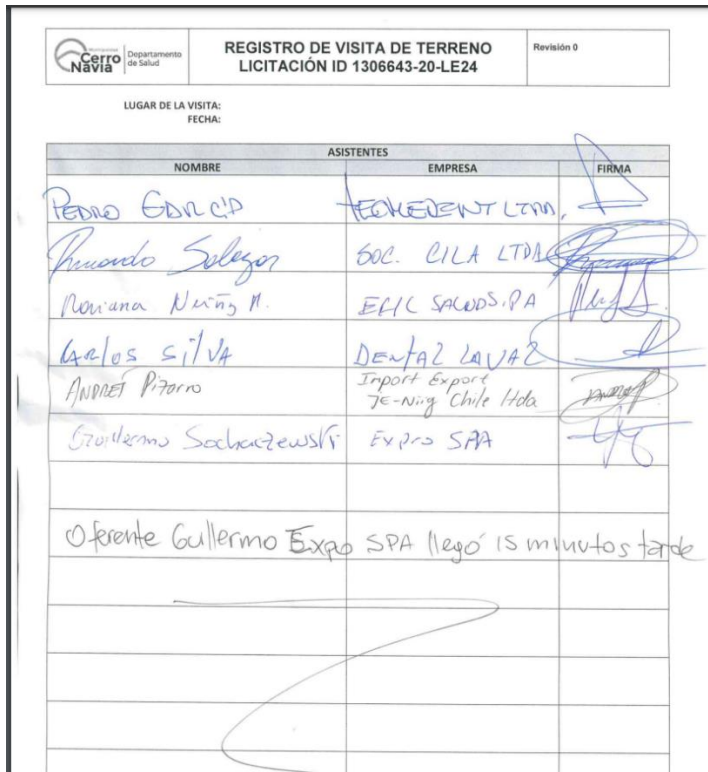 Municipalidad
Cerro Navia
Departamento de Salud
REGISTRO DE VISITA DE TERRENO
LICITACIÓN ID 1306643-20-LE24
Revisión 0
LUGAR DE LA VISITA:
FECHA:
ASISTENTES
NOMBRE EMPRESA FIRMA
PEDRO LTDA.
Armando Salazar SOC. CILA LTDA
Mariana Nuñez M. EFIC SALUD S.PA
CARlos SilVA DENTAL LAVAL
ANDRES Pizarro Import Export
JE-Niig Chile ltda
Guillermo Sochaczewski Expro SPA
Oferente Guillermo Expo SPA llegó 15 minutos tarde